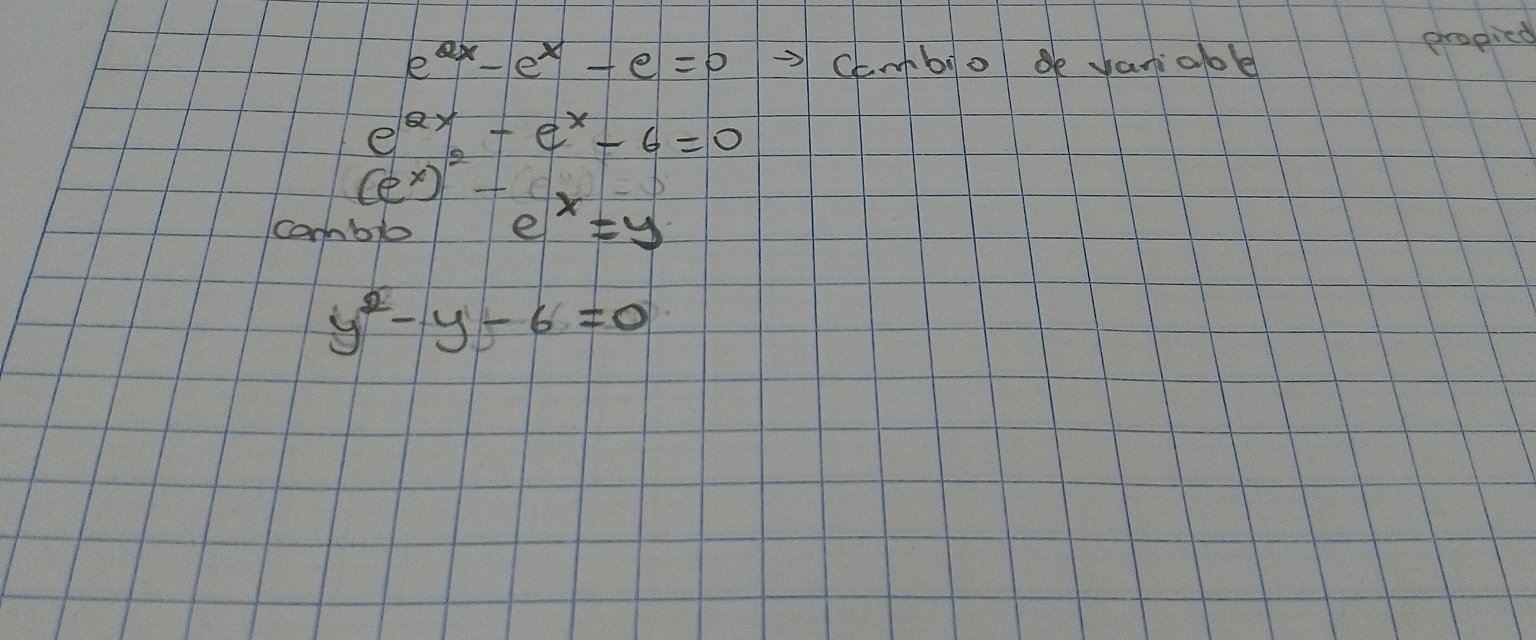 e^{2x} - e^x - e = 0 → Cambio de variable propied
e^{2x} - e^x - 6 = 0
(e^x)^2 -
cambio e^x = y
y^2 - y - 6 = 0